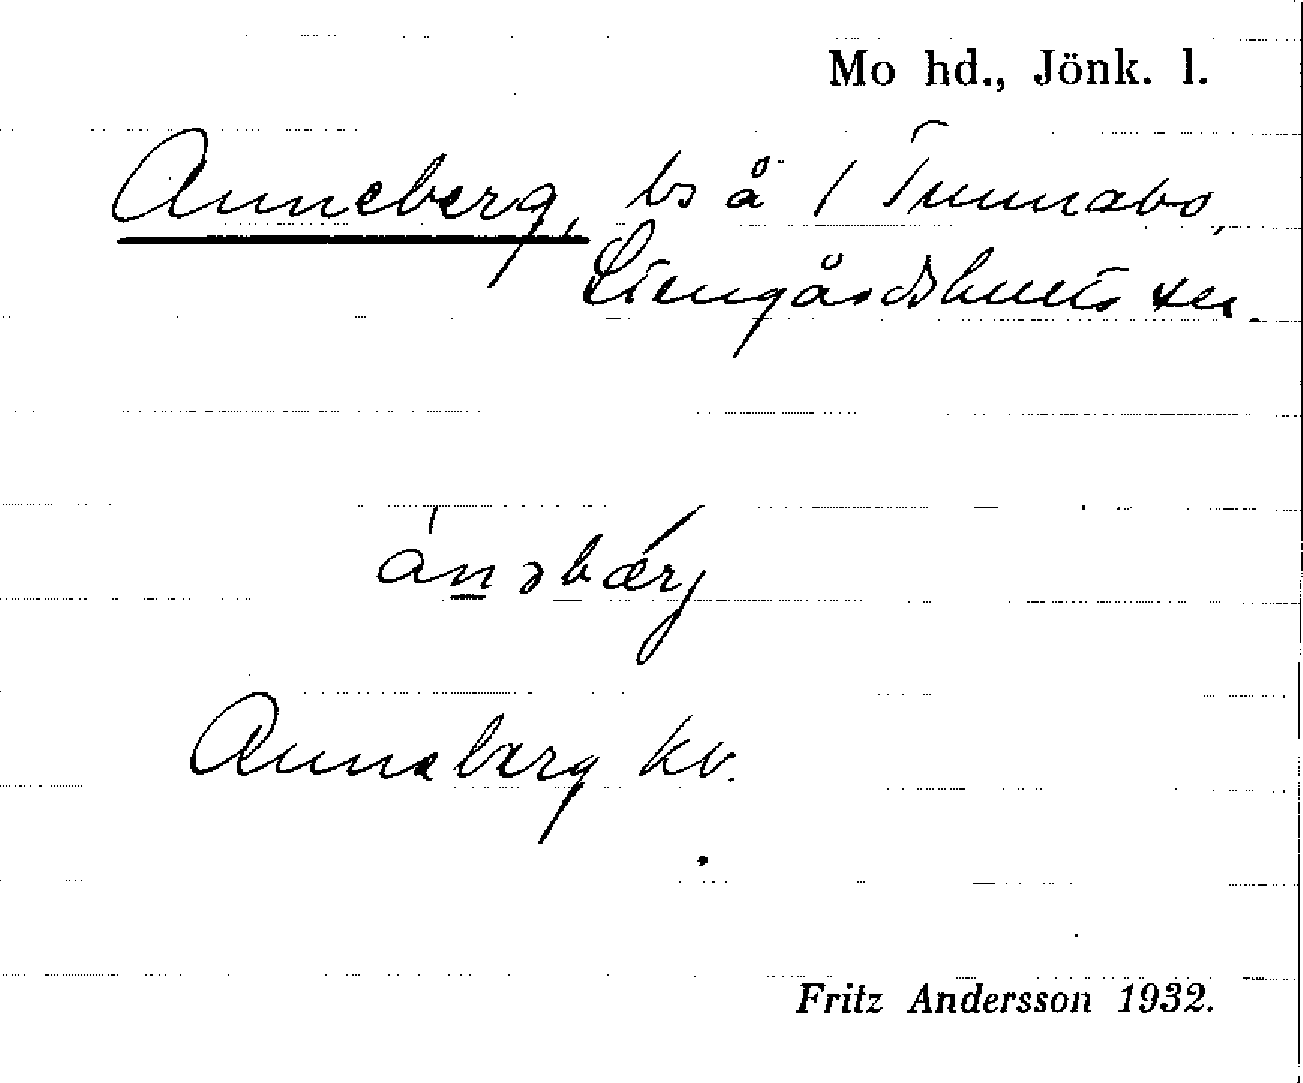 Mo hd., Jönk. l.
Anneberg, bs å 1 Tunnabo,
Stengårdshults sn.
ánəbærj
Anneberg kv.
Fritz Andersson 1932.